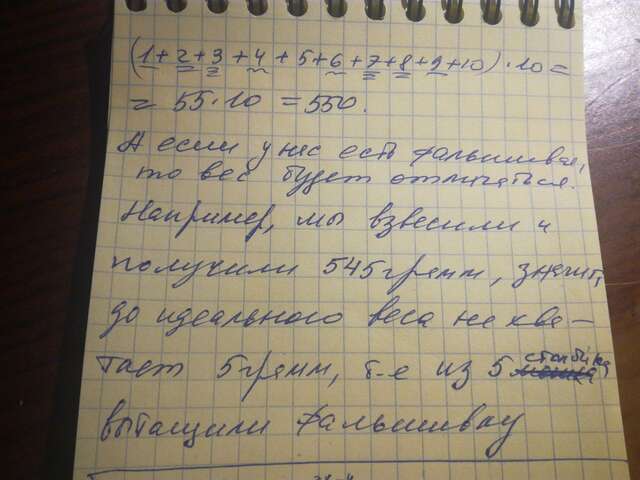 (1+2+3+4+5+6+7+8+9+10)·10=
= 55·10 = 550.
А если у нас есть фальшивые,
то вес будет отличаться.
Например, мы взвесили и
получили 545грамм, значит,
до идеального веса не хва-
тает 5грамм, т-е из 5 столбика
вытащили фальшивку